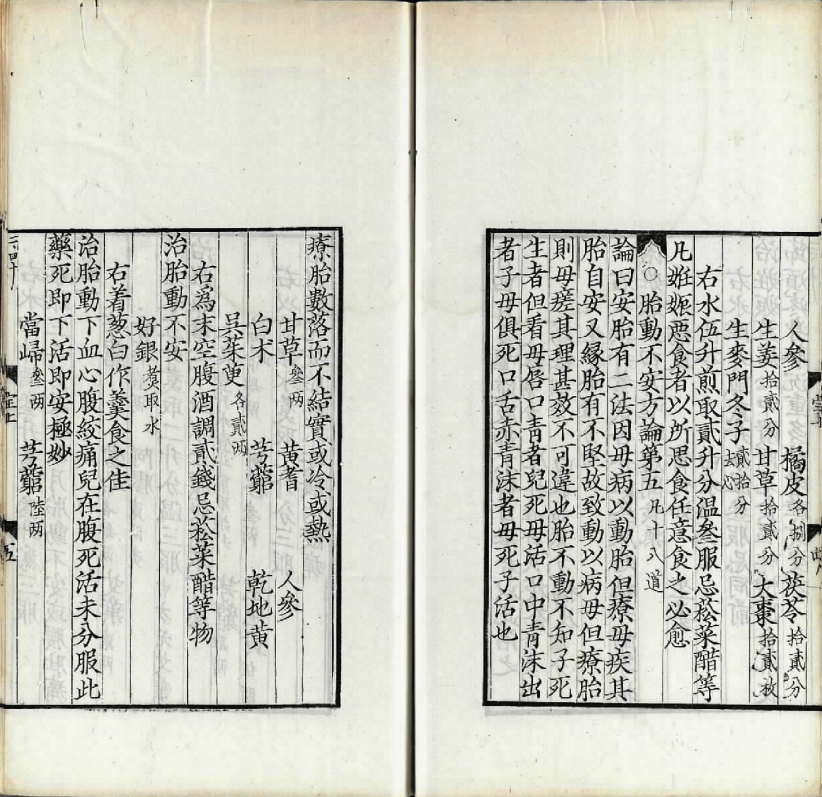 人參 橘皮各捌分 茯苓拾貳分
生姜拾貳分 甘草拾貳分 大棗拾貳枚
生麥門冬子貳拾分去心
右水伍升煎取貳升分温叄服忌菘菜醋等
凡姙娠惡食者以所思食任意食之必愈
○胎動不安方論第五凡十八道
論曰安胎有二法因毋病以動胎但療毋疾其
胎自安又緣胎有不堅故致動以病毋但療胎
則毋瘥其理甚效不可違也胎不動不知子死
生者但看毋唇口青者兒死毋活口中青沫出
者子毋俱死口舌赤青沫者毋死子活也
療胎數落而不結實或冷或熱
甘草叄两 黄耆 人參
白朮 芎藭 乾地黄
吳茱萸各貳两
右為末空腹酒調貳錢忌菘菜醋等物
治胎動不安
好銀煑取水
右着葱白作羹食之佳
治胎動下血心腹絞痛兒在腹死活未分服此
藥死即下活即安極妙
當歸叄两 芎藭陸两
五